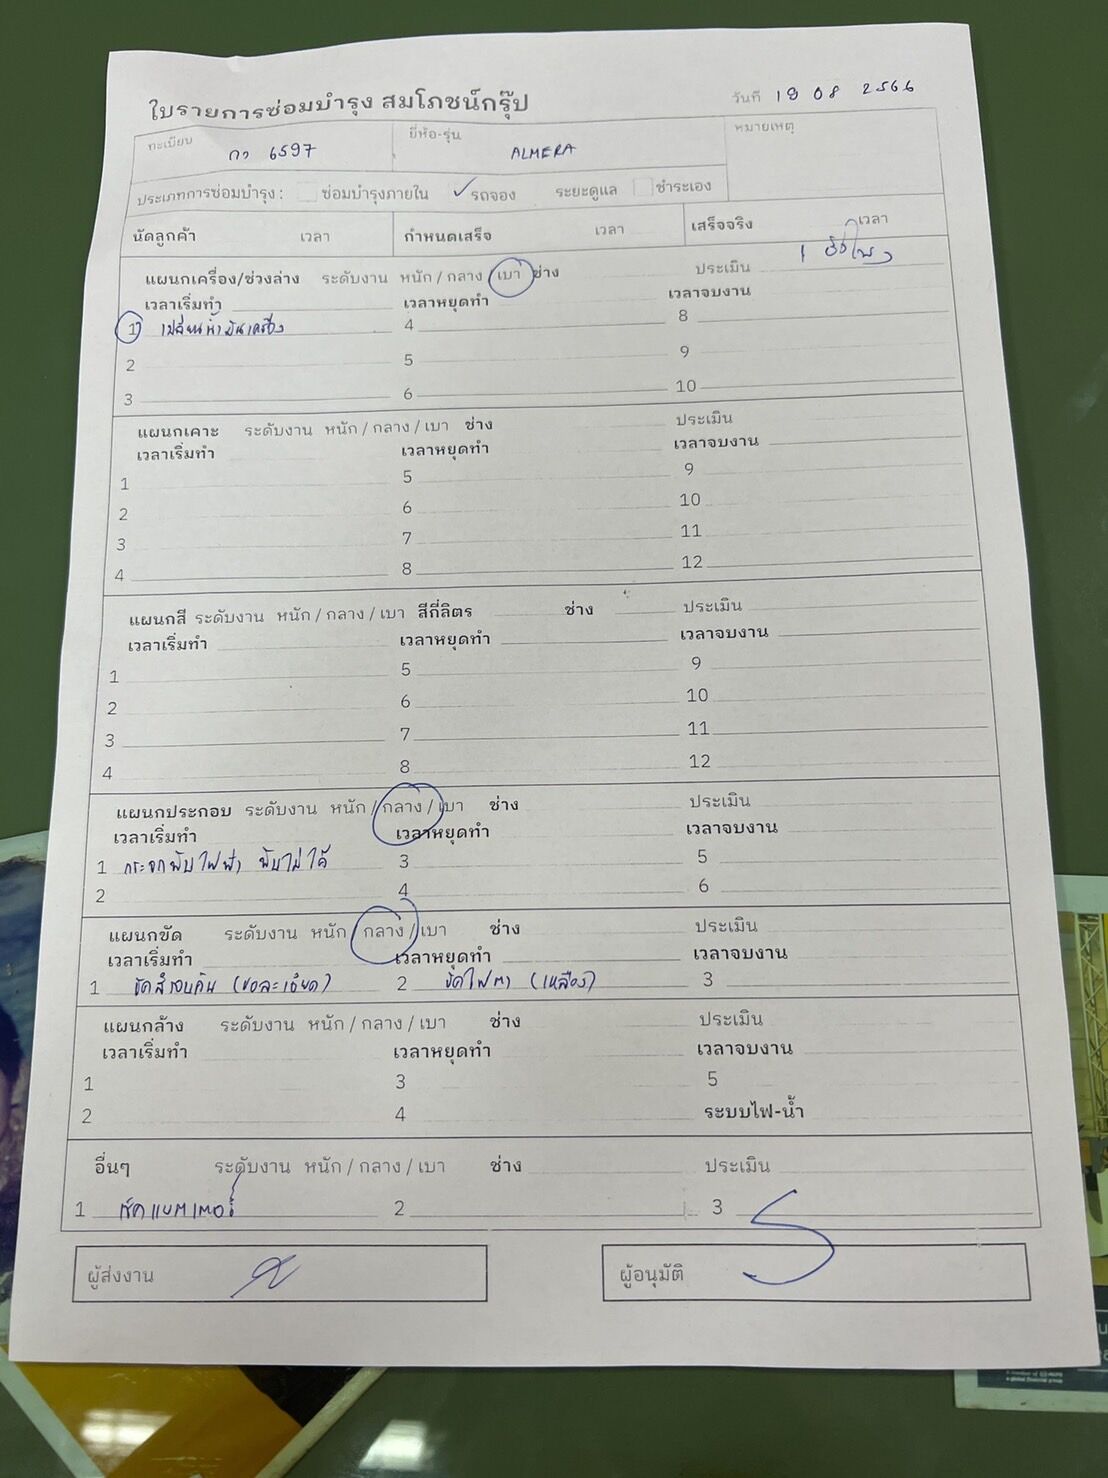 ใบรายการซ่อมบำรุง สมโภชน์กรุ๊ป
วันที่ 19 08 2566
ทะเบียน กว 6597 ยี่ห้อ-รุ่น ALMERA หมายเหตุ
ประเภทการซ่อมบำรุง : ซ่อมบำรุงภายใน ✓ รถจอง ระยะดูแล ชำระเอง
นัดลูกค้า เวลา กำหนดเสร็จ เวลา เสร็จจริง เวลา
แผนกเครื่อง/ช่วงล่าง ระดับงาน หนัก / กลาง / เบา ช่าง ประเมิน 1 ชั่วโมง
เวลาเริ่มทำ เวลาหยุดทำ เวลาจบงาน
1 เปลี่ยนน้ำมันเครื่อง 4 8
2 5 9
3 6 10
แผนกเคาะ ระดับงาน หนัก / กลาง / เบา ช่าง ประเมิน
เวลาเริ่มทำ เวลาหยุดทำ เวลาจบงาน
1 5 9
2 6 10
3 7 11
4 8 12
แผนกสี ระดับงาน หนัก / กลาง / เบา สีกี่ลิตร ช่าง ประเมิน
เวลาเริ่มทำ เวลาหยุดทำ เวลาจบงาน
1 5 9
2 6 10
3 7 11
4 8 12
แผนกประกอบ ระดับงาน หนัก / กลาง / เบา ช่าง ประเมิน
เวลาเริ่มทำ เวลาหยุดทำ เวลาจบงาน
1 กระจกพับไฟฟ้า พับไม่ได้ 3 5
2 4 6
แผนกขัด ระดับงาน หนัก / กลาง / เบา ช่าง ประเมิน
เวลาเริ่มทำ เวลาหยุดทำ เวลาจบงาน
1 ขัดสีรอบคัน (ขอละเอียด) 2 ขัดไฟตา (เหลือง) 3
แผนกล้าง ระดับงาน หนัก / กลาง / เบา ช่าง ประเมิน
เวลาเริ่มทำ เวลาหยุดทำ เวลาจบงาน
1 3 5
2 4 ระบบไฟ-น้ำ
อื่นๆ ระดับงาน หนัก / กลาง / เบา ช่าง ประเมิน
1 เช็คแบตเตอรี่ 2 3
ผู้ส่งงาน ผู้อนุมัติ